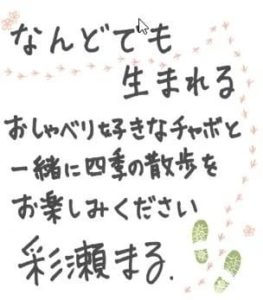 なんどでも
生まれる
おしゃべり好きなチャボと
一緒に四季の散歩を
お楽しみください
彩瀬まる.